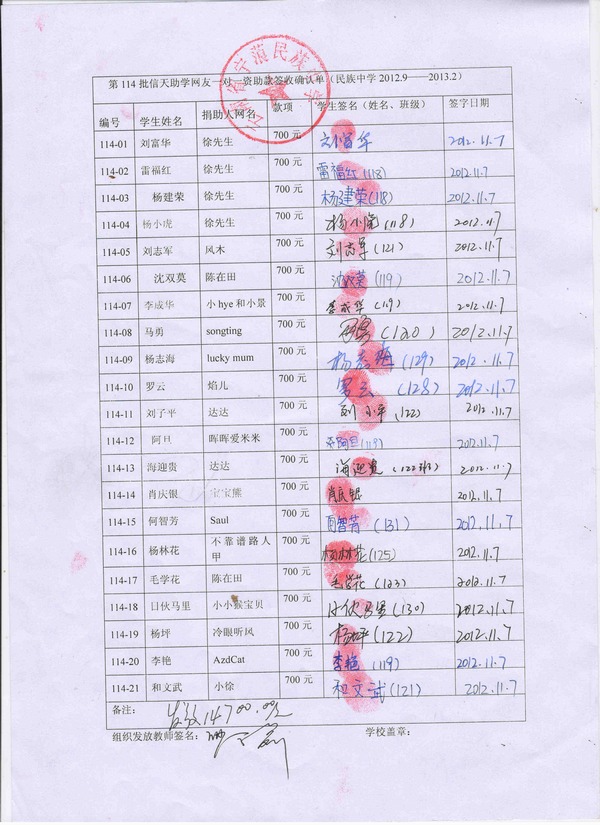 第 114 批信天助学网友一对一资助款签收确认单（民族中学 2012.9——2013.2）
编号 学生姓名 捐助人网名 款项 学生签名（姓名、班级） 签字日期
114-01 刘富华 徐先生 700 元 刘富华 2012.11.7
114-02 雷福红 徐先生 700 元 雷福红(118) 2012.11.7
114-03 杨建荣 徐先生 700 元 杨建荣(118) 2012.11.7
114-04 杨小虎 徐先生 700 元 杨小虎(118) 2012.11.7
114-05 刘志军 风木 700 元 刘志军(121) 2012.11.7
114-06 沈双莫 陈在田 700 元 沈双莫(119) 2012.11.7
114-07 李成华 小 hye 和小景 700 元 李成华(119) 2012.11.7
114-08 马勇 songting 700 元 马勇(120) 2012.11.7
114-09 杨志海 lucky mum 700 元 杨志海(129) 2012.11.7
114-10 罗云 焰儿 700 元 罗云(128) 2012.11.7
114-11 刘子平 达达 700 元 刘子平(122) 2012.11.7
114-12 阿旦 晖晖爱米米 700 元 阿旦(119) 2012.11.7
114-13 海迎贵 达达 700 元 海迎贵 2012.11.7
114-14 肖庆银 宝宝熊 700 元 肖庆银 2012.11.7
114-15 何智芳 Saul 700 元 何智芳(131) 2012.11.7
114-16 杨林花 不靠谱路人甲 700 元 杨林花(125) 2012.11.7
114-17 毛学花 陈在田 700 元 毛学花(123) 2012.11.7
114-18 日伙马里 小小猴宝贝 700 元 日伙马里(130) 2012.11.7
114-19 杨坪 冷眼听风 700 元 杨坪(122) 2012.11.7
114-20 李艳 AzdCat 700 元 李艳(119) 2012.11.7
114-21 和文武 小徐 700 元 和文武(121) 2012.11.7
备注： 发放14700.00元
组织发放教师签名： 学校盖章：